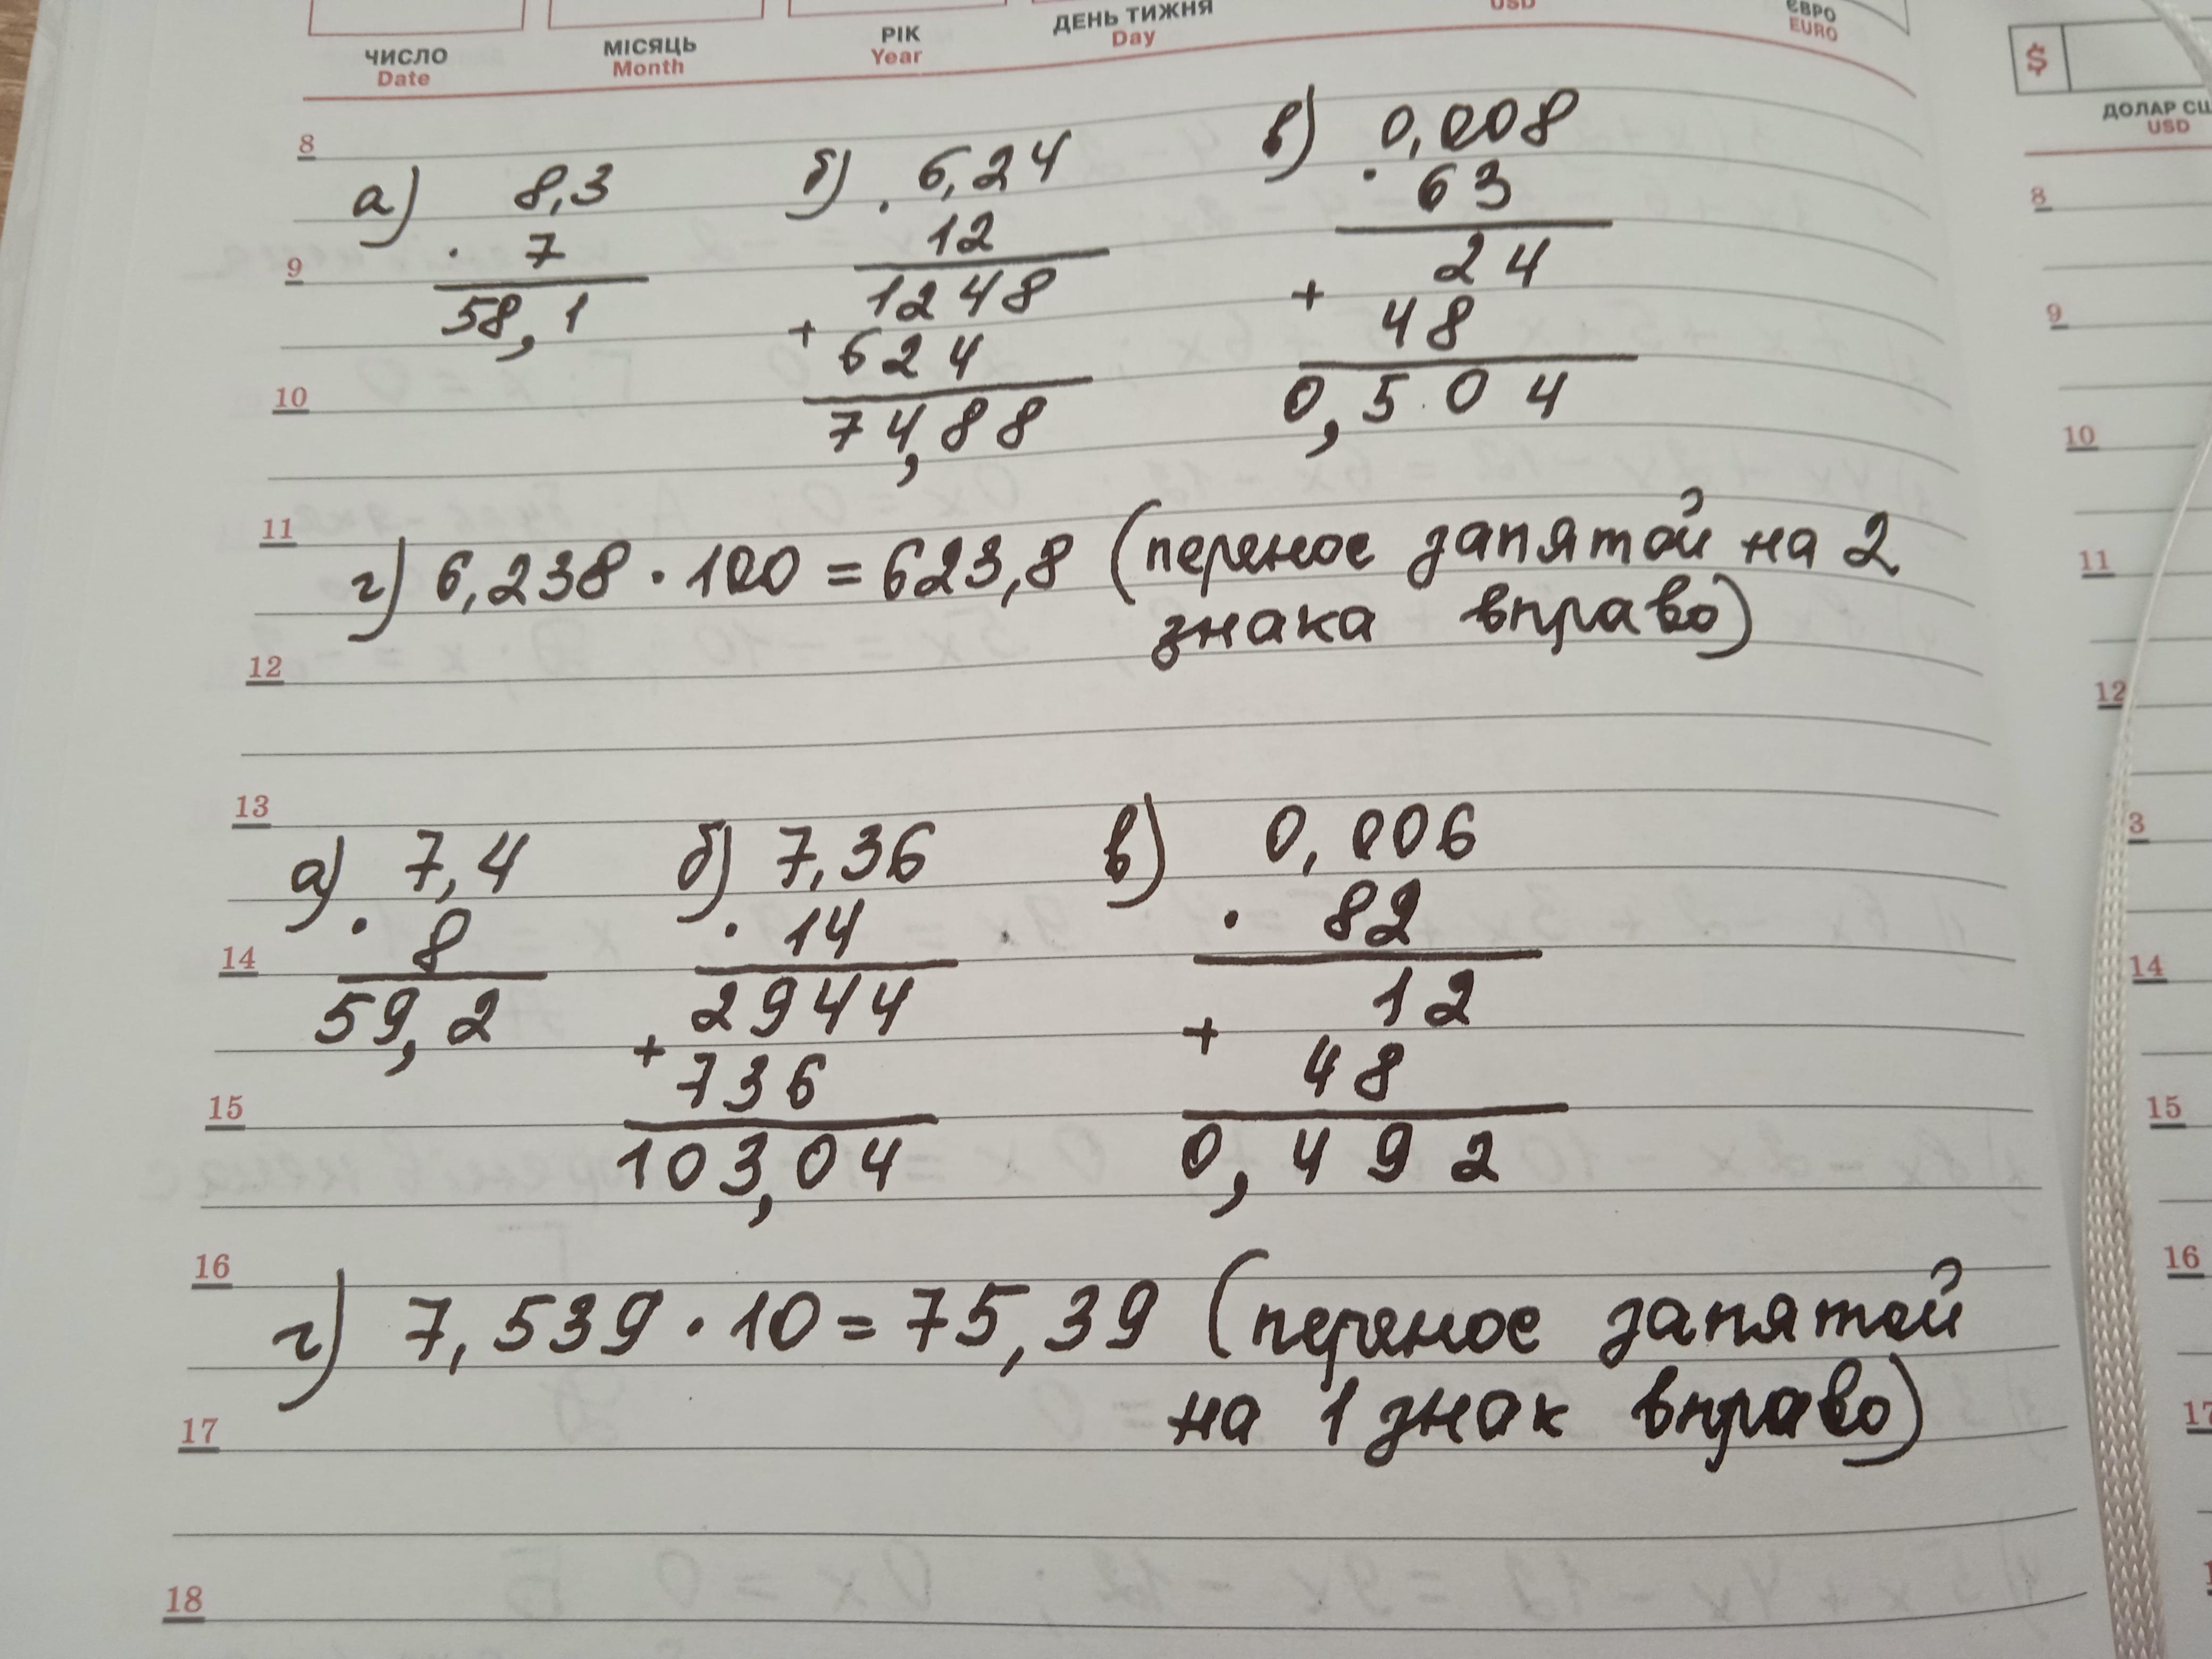 ЧИСЛО
Date
МІСЯЦЬ
Month
РІК
Year
ДЕНЬ ТИЖНЯ
Day
USD
ЄВРО
EURO
$
ДОЛАР СШ
USD
8
9
10
11
12
13
14
15
16
17
18
а) 8,3
· 7
58,1
б) · 6,24
12
1248
+ 624
74,88
в) 0,008
· 63
24
+ 48
0,504
г) 6,238 · 100 = 623,8 (перенос запятой на 2
знака вправо)
а) 7,4
· 8
59,2
б) 7,36
· 14
2944
+ 736
103,04
в) 0,006
· 82
12
+ 48
0,492
г) 7,539 · 10 = 75,39 (перенос запятой
на 1 знак вправо)
8
9
10
11
12
3
14
15
16
17